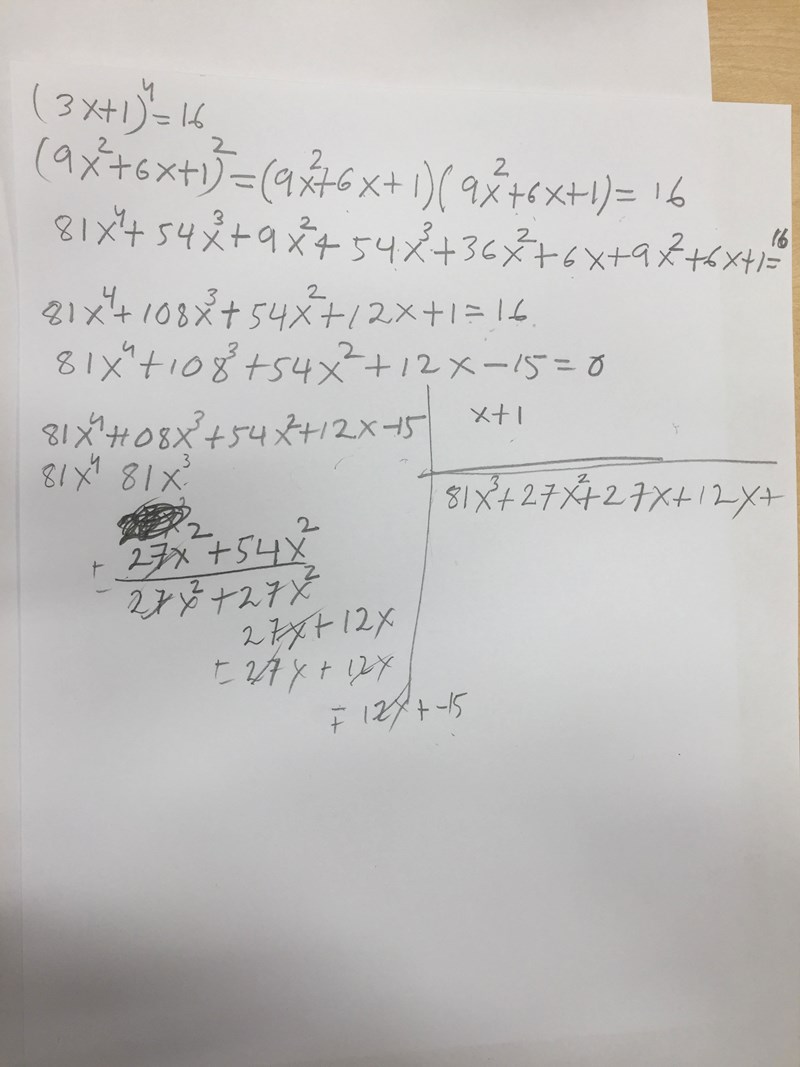 (3x+1)⁴=16
(9x²+6x+1)²=(9x²+6x+1)(9x²+6x+1)=16
81x⁴+54x³+9x²+54x³+36x²+6x+9x²+6x+1=16
81x⁴+108x³+54x²+12x+1=16
81x⁴+108³+54x²+12x-15=0
81x⁴+108x³+54x²+12x-15
x+1
81x⁴ 81x³
81x³+27x²+27x+12x+
27x²+54x²
27x²+27x²
27x+12x
27x+12x
12x+-15